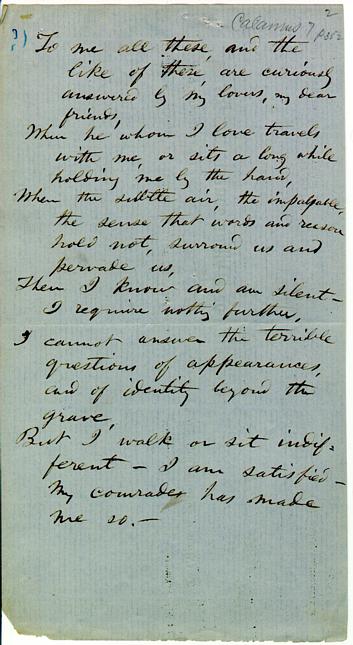 2
Calamus 7
p352
2)
To me all these, and the
like of these, are curiously
answered by my lovers, my dear
friends,
When he whom I love travels
with me, or sits a long while
holding me by the hand,
When the subtle air, the impalpable,
the sense that words and reason
hold not, surround us and
pervade us,
Then I know and am silent—
I require nothing further,
I cannot answer the terrible
questions of appearances,
and of identity beyond the
grave,
But I walk or sit indif-
ferent — I am satisfied—
My comrades has made
me so.—